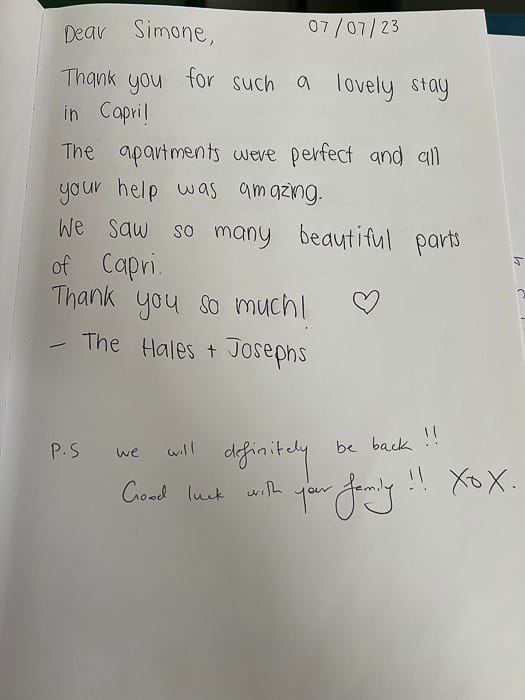 Dear Simone, 07/07/23
Thank you for such a lovely stay
in Capri!
The apartments were perfect and all
your help was amazing.
We saw so many beautiful parts
of Capri.
Thank you so much! ♡
– The Hales + Josephs
P.S we will definitely be back !!
Good luck with your family !! XOX.